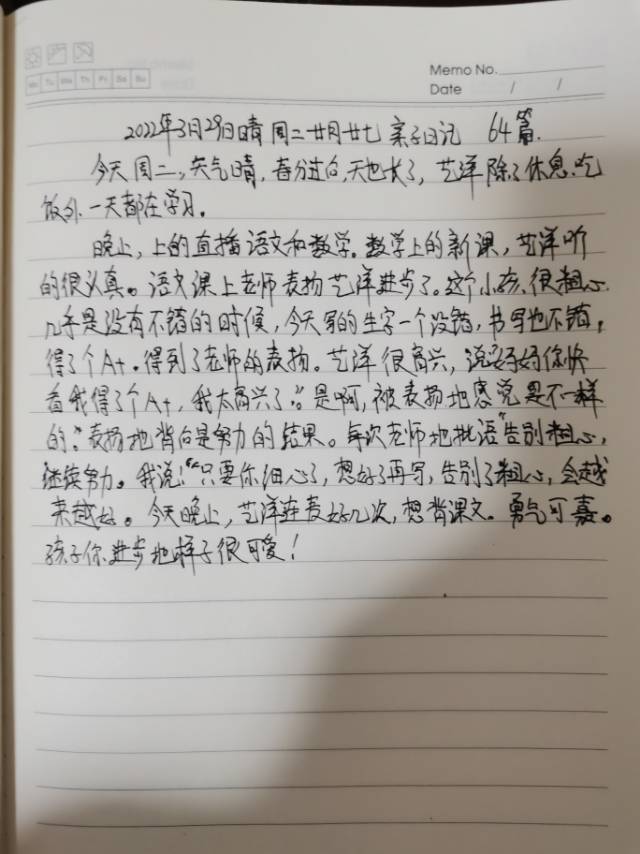 Mo Tu We Th Fr Sa Su
Memo No.
Date / /
2022年3月29日晴 周二廿月廿七 亲子日记 64篇.
今天周二,天气晴,春分过后,天也长了,艺洋除了休息、吃
饭外.一天都在学习。
晚上,上的直播语文和数学。数学上的新课,艺洋听
的很认真。语文课上老师表扬艺洋进步了。这个小孩很粗心
几乎是没有不错的时候,今天写的生字一个没错,书写也不错,
得了个A+.得到了老师的表扬。艺洋很高兴,说:妈妈你快
看我得了个A+,我太高兴了。”是啊,被表扬地感觉是不一样
的,表扬地背后是努力的结果。每次老师地批语“告别粗心,
继续努力。我说:“只要你细心了,想好了再写,告别了粗心,会越
来越好。今天晚上,艺洋连麦好几次,想背课文。勇气可嘉。
孩子你进步地样子很可爱!